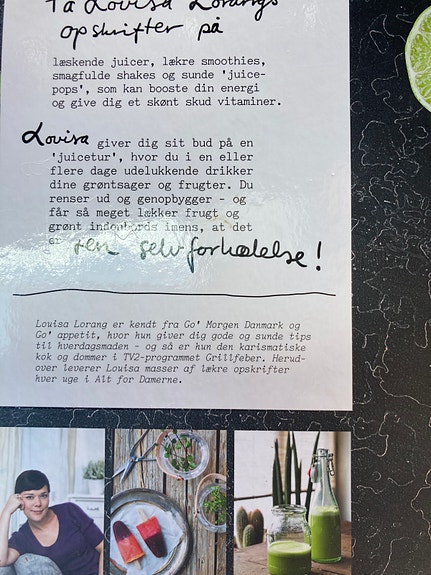 Få Lovisa Lorangs
opskrifter på
læskende juicer, lækre smoothies,
smagfulde shakes og sunde 'juice-
pops', som kan booste din energi
og give dig et skønt skud vitaminer.
Lovisa giver dig sit bud på en
'juicetur', hvor du i en eller
flere dage udelukkende drikker
dine grøntsager og frugter. Du
renser ud og genopbygger - og
får så meget lækker frugt og
grønt indenbords imens, at det
er ren selvforkælelse!
Louisa Lorang er kendt fra Go' Morgen Danmark og
Go' appetit, hvor hun giver dig gode og sunde tips
til hverdagsmaden - og så er hun den karismatiske
kok og dommer i TV2-programmet Grillfeber. Herud-
over leverer Louisa masser af lækre opskrifter
hver uge i Alt for Damerne.